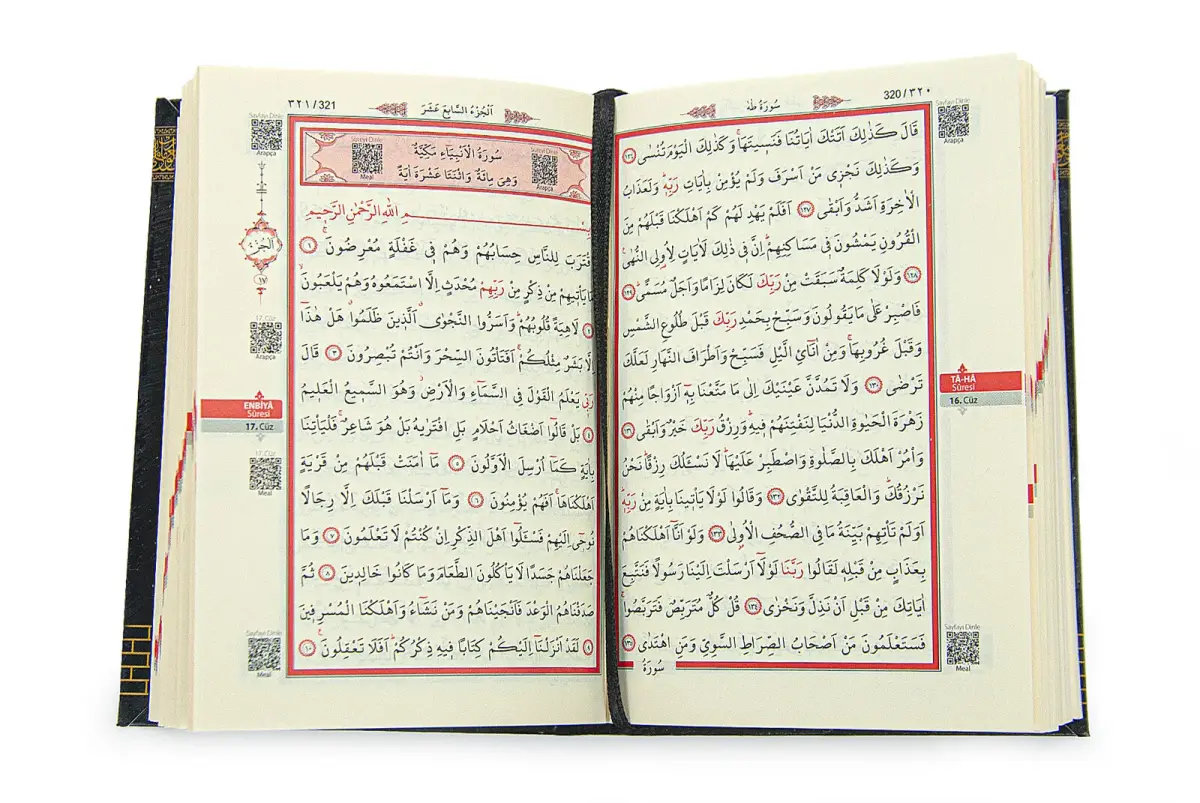 320/٣٢٠
سُورَةُ طٰهٰ
Sayfayı Dinle
Arapça
قَالَ كَذٰلِكَ اَتَتْكَ اٰيَاتُنَا فَنَسِيتَهَاۚ وَكَذٰلِكَ الْيَوْمَ تُنْسٰى ١٢٦
وَكَذٰلِكَ نَجْزِي مَنْ اَسْرَفَ وَلَمْ يُؤْمِنْ بِاٰيَاتِ رَبِّهٖۜ وَلَعَذَابُ
الْاٰخِرَةِ اَشَدُّ وَاَبْقٰى ١٢٧ اَفَلَمْ يَهْدِ لَهُمْ كَمْ اَهْلَكْنَا قَبْلَهُمْ مِنَ
الْقُرُونِ يَمْشُونَ فِي مَسَاكِنِهِمْۜ اِنَّ فِي ذٰلِكَ لَاٰيَاتٍ لِاُولِي النُّهٰى۟
١٢٨ وَلَوْلَا كَلِمَةٌ سَبَقَتْ مِنْ رَبِّكَ لَكَانَ لِزَامًا وَاَجَلٌ مُسَمًّىۜ ١٢٩
فَاصْبِرْ عَلٰى مَا يَقُولُونَ وَسَبِّحْ بِحَمْدِ رَبِّكَ قَبْلَ طُلُوعِ الشَّمْسِ
وَقَبْلَ غُرُوبِهَاۚ وَمِنْ اٰنَٓائِ الَّيْلِ فَسَبِّحْ وَاَطْرَافَ النَّهَارِ لَعَلَّكَ
تَرْضٰى ١٣٠ وَلَا تَمُدَّنَّ عَيْنَيْكَ اِلٰى مَا مَتَّعْنَا بِهٖٓ اَزْوَاجًا مِنْهُمْ
زَهْرَةَ الْحَيٰوةِ الدُّنْيَا لِنَفْتِنَهُمْ فِيهِۜ وَرِزْقُ رَبِّكَ خَيْرٌ وَاَبْقٰى ١٣١
وَاْمُرْ اَهْلَكَ بِالصَّلٰوةِ وَاصْطَبِرْ عَلَيْهَاۜ لَا نَسْـَٔلُكَ رِزْقًاۜ نَحْنُ
نَرْزُقُكَۜ وَالْعَاقِبَةُ لِلتَّقْوٰى ١٣٢ وَقَالُوا لَوْلَا يَأْتِينَا بِاٰيَةٍ مِنْ رَبِّهٖۜ
اَوَلَمْ تَأْتِهِمْ بَيِّنَةُ مَا فِي الصُّحُفِ الْاُولٰى ١٣٣ وَلَوْ اَنَّٓا اَهْلَكْنَاهُمْ
بِعَذَابٍ مِنْ قَبْلِهٖ لَقَالُوا رَبَّنَا لَوْلَٓا اَرْسَلْتَ اِلَيْنَا رَسُولًا فَنَتَّبِعَ
اٰيَاتِكَ مِنْ قَبْلِ اَنْ نَذِلَّ وَنَخْزٰى ١٣٤ قُلْ كُلٌّ مُتَرَبِّصٌ فَتَرَبَّصُواۚ
فَسَتَعْلَمُونَ مَنْ اَصْحَابُ الصِّرَاطِ السَّوِيِّ وَمَنِ اهْتَدٰى ١٣٥
سُورَةُ
TÂ-HÂ
Sûresi
16. Cüz
Sayfayı Dinle
Meal
٣٢١/321
اَلْجُزْءُ السَّابِعَ عَشَرَ
Sayfayı Dinle
Arapça
Sûreyi Dinle
Meal
Sûreyi Dinle
Arapça
سُورَةُ الْاَنْبِيَاءِ مَكِّيَّةٌ
وَهِيَ مِائَةٌ وَاثْنَتَا عَشْرَةَ اٰيَةً
ـــمِ اللهِ الرَّحْمٰنِ الرَّحِيمِ
قْتَرَبَ لِلنَّاسِ حِسَابُهُمْ وَهُمْ فِي غَفْلَةٍ مُعْرِضُونَۚ ١
مَا يَأْتِيهِمْ مِنْ ذِكْرٍ مِنْ رَبِّهِمْ مُحْدَثٍ اِلَّا اسْتَمَعُوهُ وَهُمْ يَلْعَبُونَۙ
٢ لَاهِيَةً قُلُوبُهُمْۜ وَاَسَرُّوا النَّجْوٰىۗ اَلَّذِينَ ظَلَمُواۗ هَلْ هٰذَٓا
اِلَّا بَشَرٌ مِثْلُكُمْۚ اَفَتَأْتُونَ السِّحْرَ وَاَنْتُمْ تُبْصِرُونَ ٣ قَالَ
رَبِّي يَعْلَمُ الْقَوْلَ فِي السَّمَٓاءِ وَالْاَرْضِۘ وَهُوَ السَّمِيعُ الْعَلِيمُ
٤ بَلْ قَالُوا اَضْغَاثُ اَحْلَامٍ بَلِ افْتَرٰيهُ بَلْ هُوَ شَاعِرٌۚ فَلْيَأْتِنَا
بِاٰيَةٍ كَمَٓا اُرْسِلَ الْاَوَّلُونَ ٥ مَٓا اٰمَنَتْ قَبْلَهُمْ مِنْ قَرْيَةٍ
اَهْلَكْنَاهَاۚ اَفَهُمْ يُؤْمِنُونَ ٦ وَمَٓا اَرْسَلْنَا قَبْلَكَ اِلَّا رِجَالًا
نُوحِٓي اِلَيْهِمْ فَسْـَٔلُٓوا اَهْلَ الذِّكْرِ اِنْ كُنْتُمْ لَا تَعْلَمُونَ ٧ وَمَا
جَعَلْنَاهُمْ جَسَدًا لَا يَأْكُلُونَ الطَّعَامَ وَمَا كَانُوا خَالِدِينَ ٨ ثُمَّ
صَدَقْنَاهُمُ الْوَعْدَ فَاَنْجَيْنَاهُمْ وَمَنْ نَشَٓاءُ وَاَهْلَكْنَا الْمُسْرِفِينَ
٩ لَقَدْ اَنْزَلْنَٓا اِلَيْكُمْ كِتَابًا فِيهِ ذِكْرُكُمْۜ اَفَلَا تَعْقِلُونَ۟ ١٠
اَلْجُزْءُ
١٧
17. Cüz
Arapça
ENBİYÂ
Sûresi
17. Cüz
17. Cüz
Meal
Sayfayı Dinle
Meal